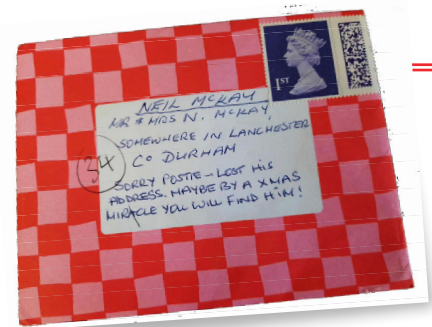 1ST
NEIL MCKAY
MR & MRS N. MCKAY,
SOMEWHERE IN LANCHESTER
CO DURHAM
34
SORRY POSTIE - LOST HIS
ADDRESS. MAYBE BY A XMAS
MIRACLE YOU WILL FIND HIM!